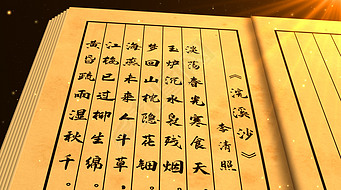 《浣溪沙》
李清照
淡荡春光寒食天
玉炉沉水袅残烟
梦回山枕隐花钿。
海燕未来人斗草,
江梅已过柳生绵,
黄昏疏雨湿秋千。